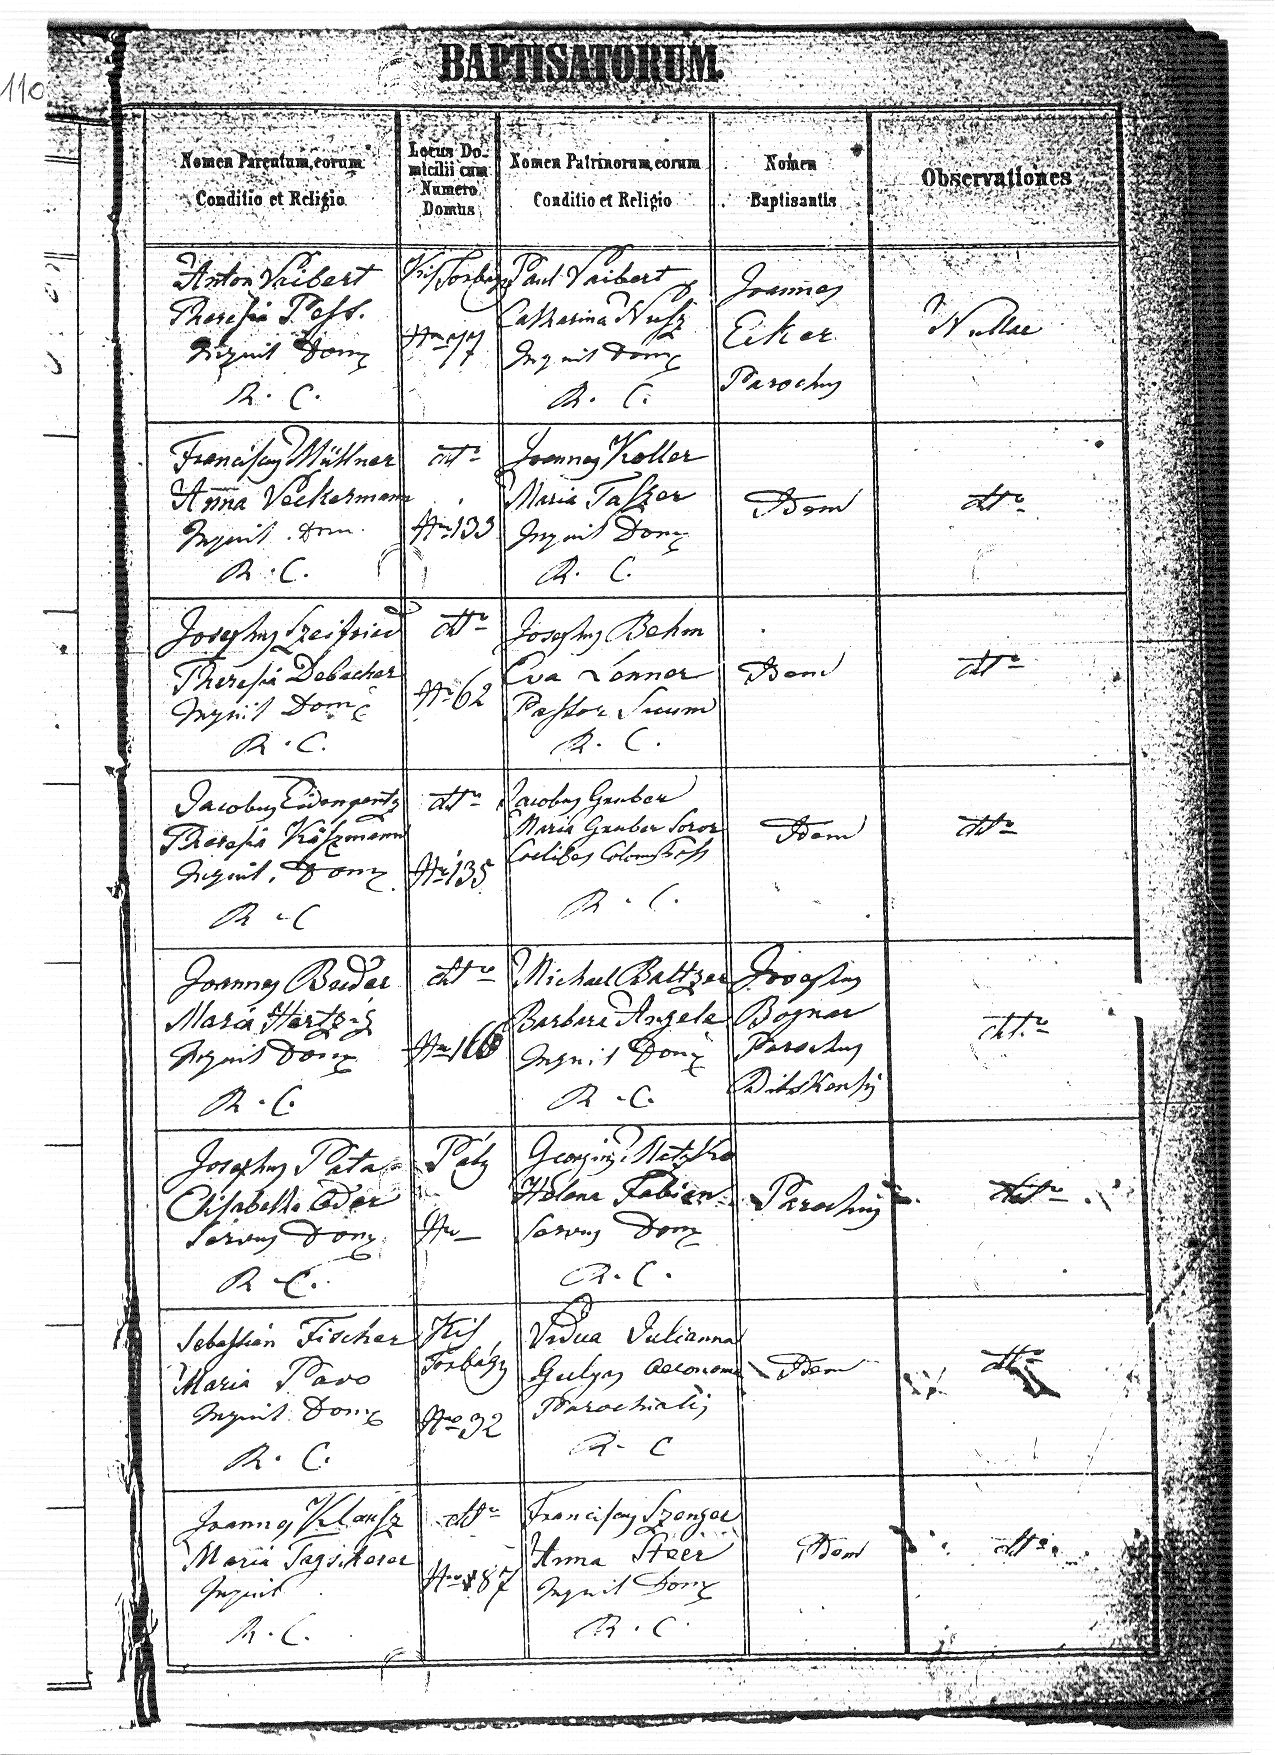 110
BAPTISATORUM.
Nomen Parentum, eorum
Conditio et Religio
Locus Do-
micilii cum
Numero
Domus
Nomen Patrinorum, eorum
Conditio et Religio
Nomen
Baptisantis
Observationes
Anton Vaibert
Theresia
Inquil Dom
R. C.
Kis Torbágy
Nro 77
Paul Vaibert
Catharina Nusz
Inquil Dom
R. C.
Joannes
Eiker
Parochus
Nullae
Franciscus Müllner
Anna Veckermann
Inquil. Dom
R. C.
dtto
Nro 133
Joannes Koller
Maria
Inquil Dom
R. C.
Idem
dtto
Josephus Szeifried
Theresia Debacher
Inquil Dom
R. C.
dtto
Nro 62
Josephus Behm
Eva Lenner
Pastor Suum
R. C.
Idem
dtto
Jacobus
Theresia
Inquil. Dom
R. C
dtto
Nro 135
Jacobus Gruber
Maria Gruber Soror
Coelibes
R. C.
Idem
dtto
Joannes
Maria
Inquil Dom
R. C.
dtto
Nro
Michael Baltzer
Barbara Angela
Inquil Dom
R. C.
Josephus
Bognar
Parochus
dtto
Josephus Pata
Elisabetha Eder
Servus Dom
R. C.
Páty
Nro —
Georgius
Helena Fabian
Servus Dom
R. C.
Parochus
dtto
Sebastian Fischer
Maria Pavo
Inquil Dom
R. C.
Kis
Torbágy
Nro 32
Vidua Julianna
Gulyas Oeconoma
Parochialis
R. C
Idem
dtto
Joannes Klausz
Maria
Inquil
R. C.
dtto
Nro 87
Franciscus Szenger
Anna Steer
Inquil Dom
R. C
Idem
dtto